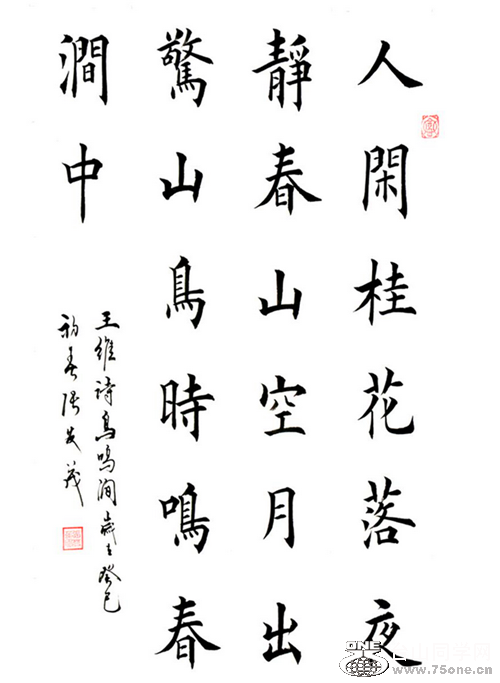 人閑桂花落夜
靜春山空月出
驚山鳥時鳴春
澗中
王維詩鳥鳴澗歲在癸巳
初春張
ONE
www.75one.cn